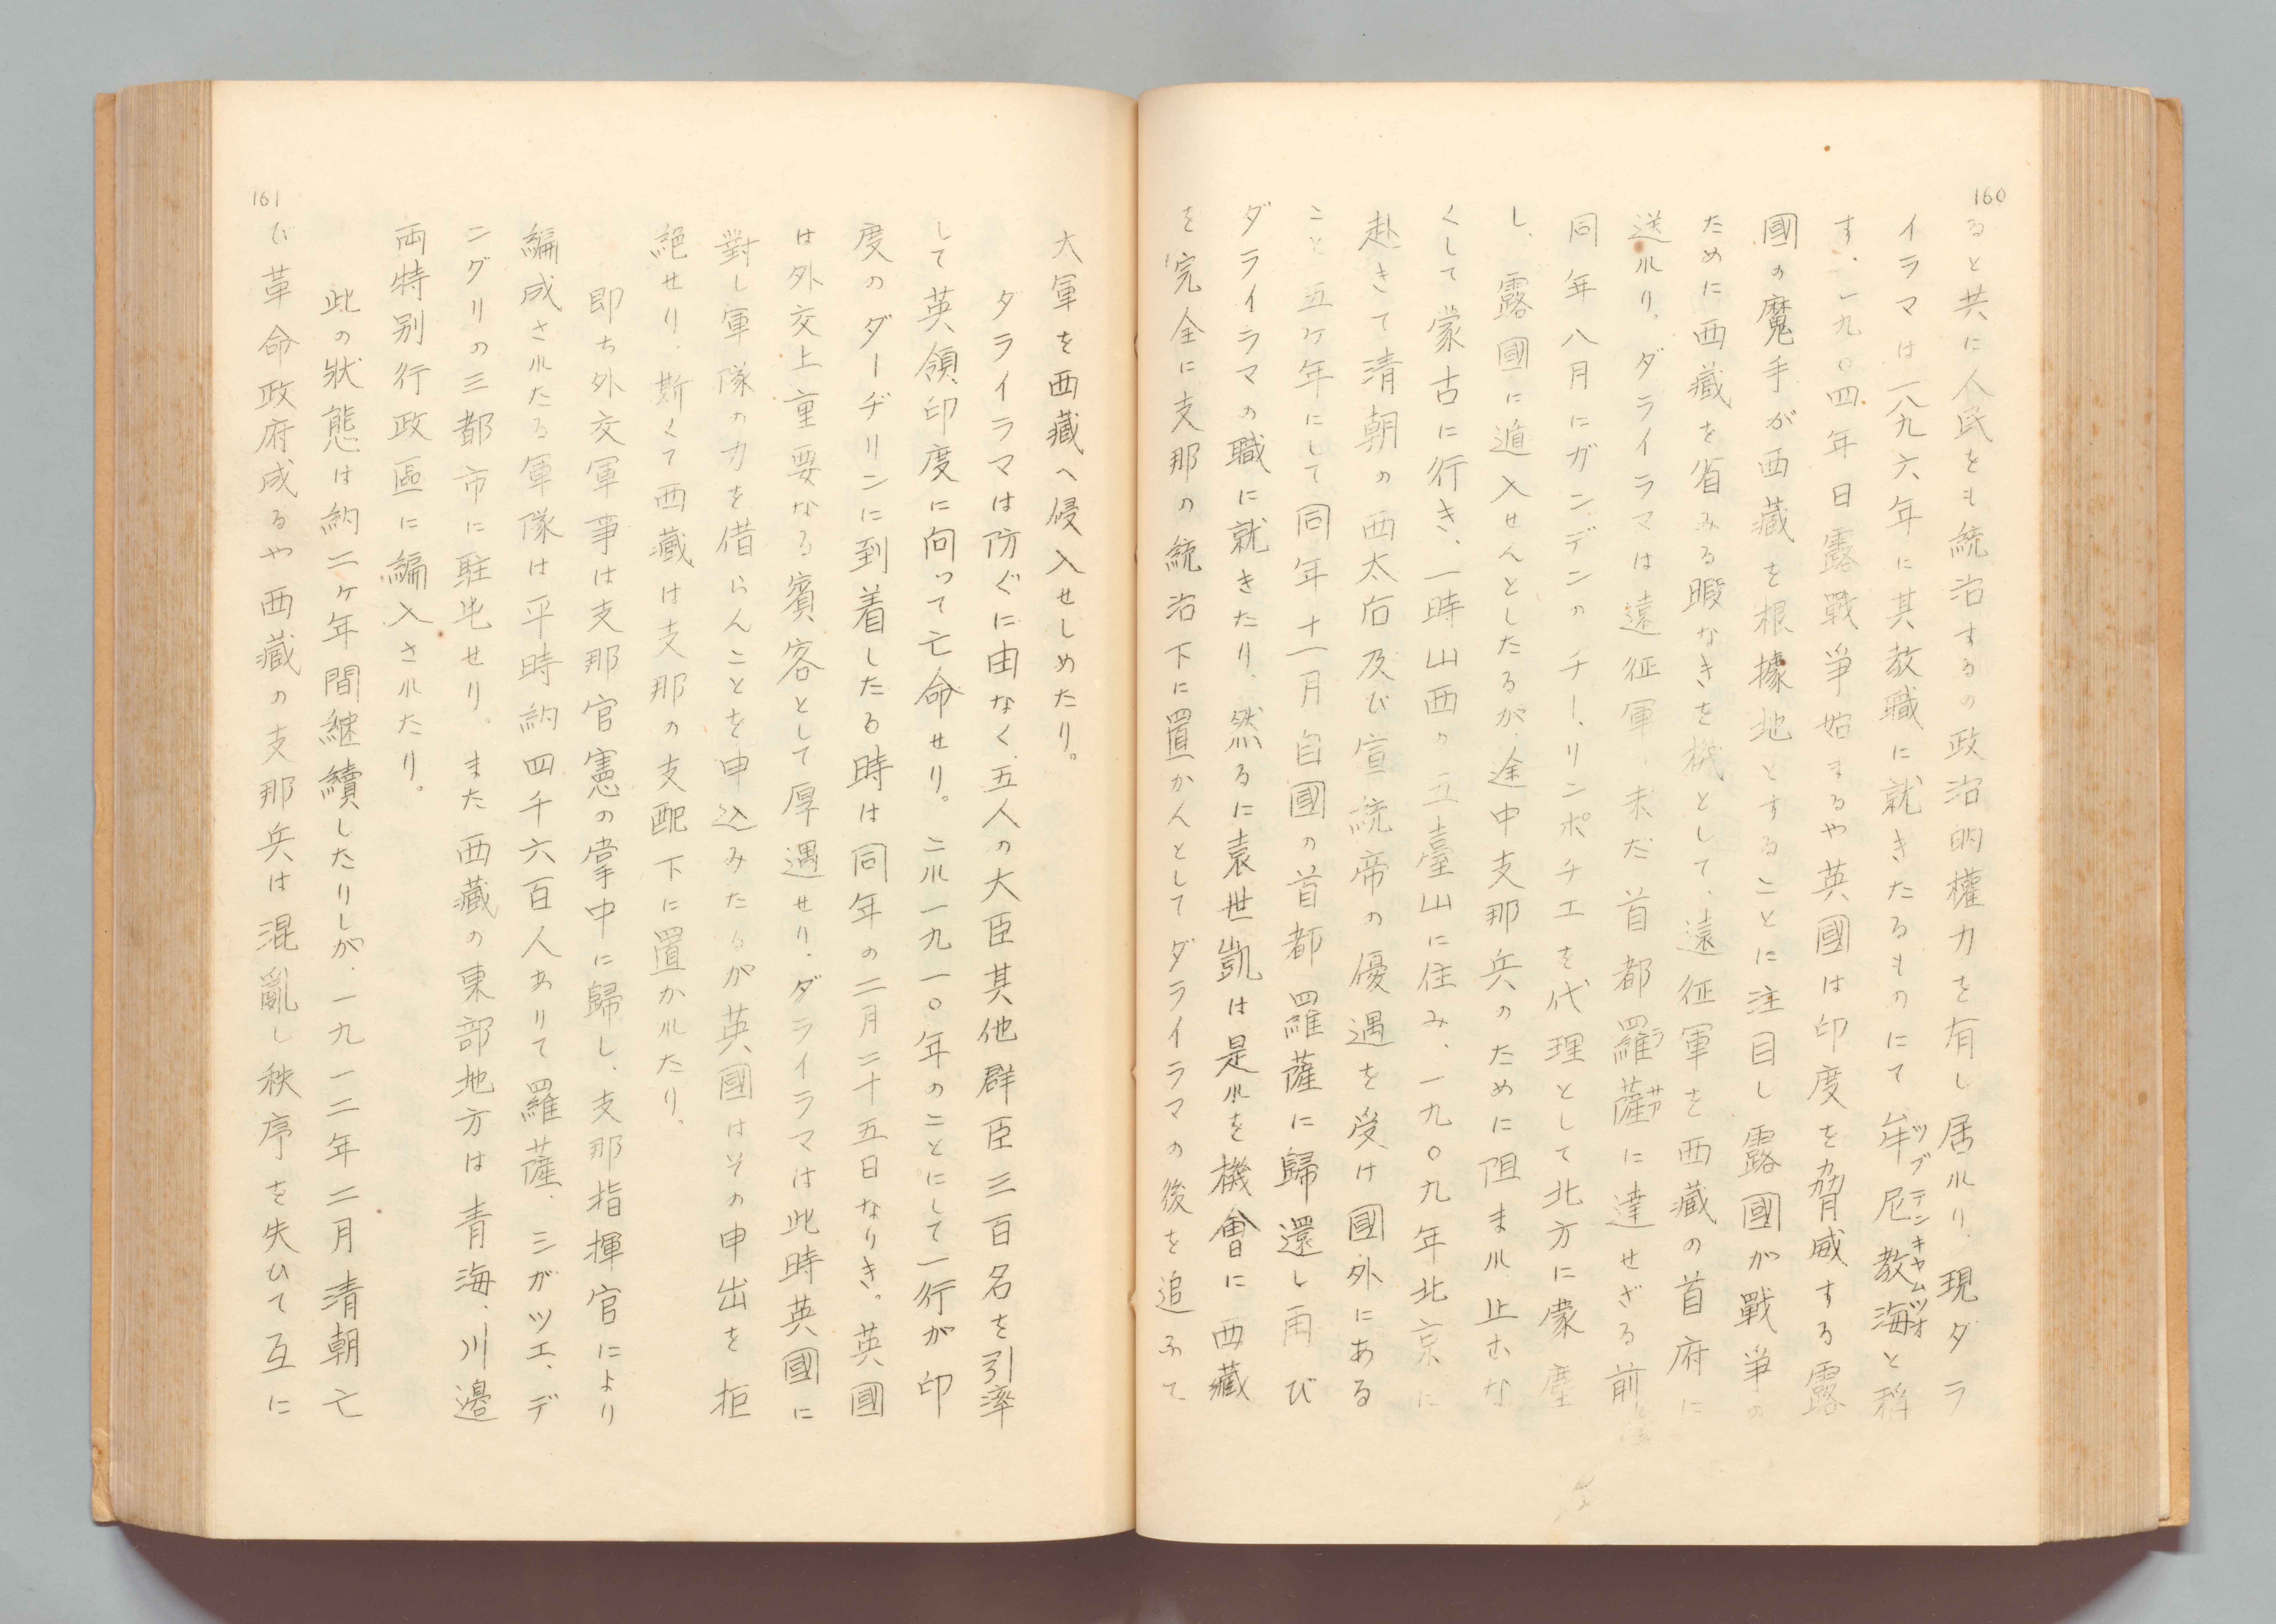 160
ると共に人民をも統治するの政治的權力を有し居れり、現ダラ
イラマは一八九六年に其教職に就きたるものにて牟尼教海と稱
ツブテンキャムツオ
す、一九〇四年日露戰爭始まるや英國は印度を脅威する露
國の魔手が西藏を根據地とすることに注目し露國が戰爭の
ために西藏を省みる暇なきを機として、遠征軍を西藏の首府に
送れり。ダライラマは遠征軍、未だ首都羅薩に達せざる前
ラサ
同年八月にガンデンのチー、リンポチエを代理として北方に蒙塵
し、露國に遁入せんとしたるが、途中支那兵のために阻まれ止むな
くして蒙古に行き、一時山西の五臺山に住み、一九〇九年北京に
赴きて清朝の西太后及び宣統帝の優遇を受け國外にある
こと五ケ年にして同年十一月自國の首都羅薩に歸還し再び
ダライラマの職に就きたり、然るに袁世凱は是れを機會に西藏
を完全に支那の統治下に置かんとしてダライラマの後を追ふて
大軍を西藏へ侵入せしめたり。
タライラマは防ぐに由なく、五人の大臣其他群臣三百名を引率
して英領印度に向って亡命せり。之れ一九一〇年のことにして一行が印
度のダーヂリンに到着したる時は同年の二月二十五日なりき。英國
は外交上重要なる賓客として厚遇せり、ダライラマは此時英國に
對し軍隊の力を借らんことを申込みたるが英國はその申出を拒
絶せり、斯くて西藏は支那の支配下に置かれたり。
即ち外交軍事は支那官憲の掌中に歸し、支那指揮官により
編成されたる軍隊は平時約四千六百人ありて羅薩、ミガツエ、デ
ングリの三都市に駐屯せり。また西藏の東部地方は青海、川邊
両特別行政區に編入されたり。
此の狀態は約二ケ年間継續したりしが、一九一二年二月清朝亡
び革命政府成るや西藏の支那兵は混亂し秩序を失ひて互に
161